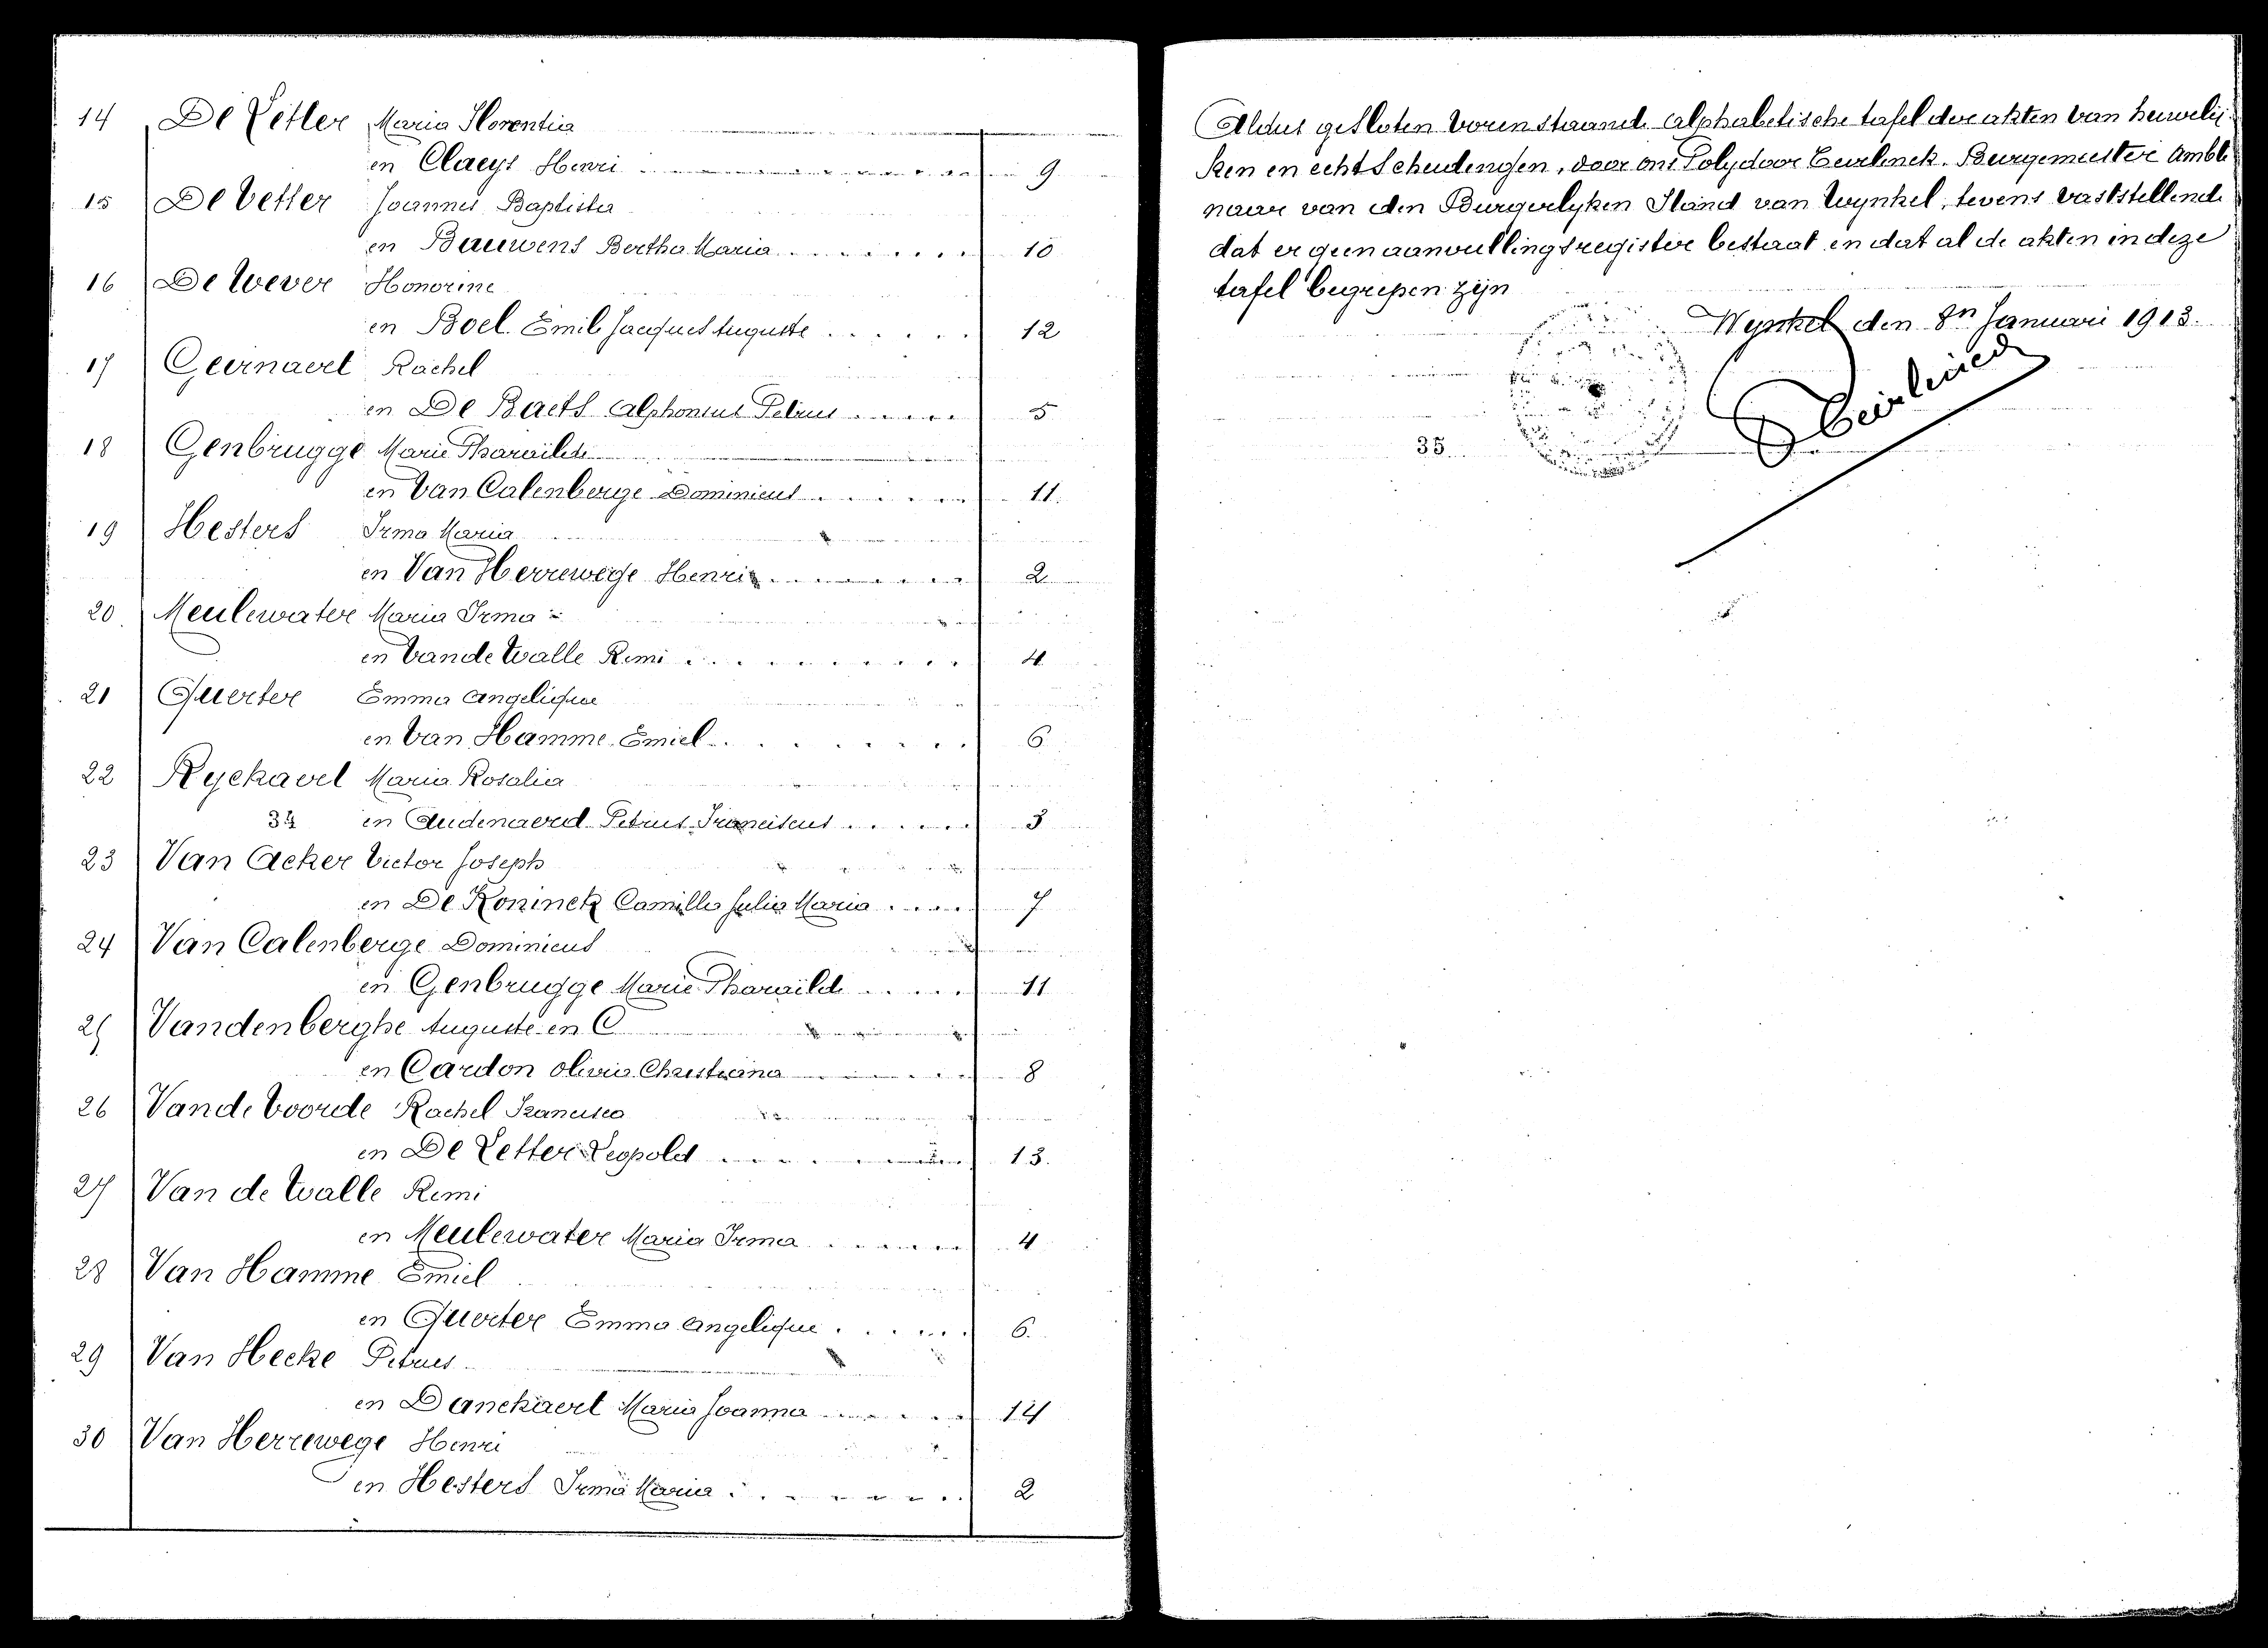 14 De Letter Maria Florentia
en Claeys Henri 9
15 De Vetter Joannes Baptista
en Bauwens Bertha Maria 10
16 De Wever Honorine
en Boel Emile Jacques Auguste 12
17 Geirnaert Rachel
en De Baets Alphonsus Petrus 5
18 Genbrugge Marie Tharcilde
en Van Calenberge Dominicus 11.
19 Hesters Irma Maria
en Van Herrewege Henri 2
20. Meulewater Maria Irma
en Vande Walle Remi 4
21 Querter Emma Angelique
en Van Hamme Emiel 6
22 Ryckaert Maria Rosalia
34 en Audenaerd Petrus Franciscus 3
23 Van Acker Victor Joseph
en De Koninck Camilla Julia Maria 7
24 Van Calenberge Dominicus
en Genbrugge Marie Tharcilde 11
25 Vandenberghe Auguste en C
en Cardon Olivia Christiana 8
26 Vande Voorde Rachel Francisca
en De Letter Leopold 13.
27 Van de Walle Remi
en Meulewater Maria Irma 4
28 Van Hamme Emiel
en Querter Emma Angelique 6.
29 Van Hecke Petrus
en Danckaert Maria Joanna 14
30 Van Herrewege Henri
en Hesters Irma Maria 2
Aldus gesloten vorenstaande alphabetische tafel der akten van huwelij-
ken en echtscheidingen, door ons Polydoor Burgemeester Ambte
naar van den Burgerlyken Stand van Wynkel, tevens vaststellende
dat er geen aanvullingsregister bestaat en dat al de akten in deze
tafel begrepen zijn
Wynkel den 8n Januari 1913.
35